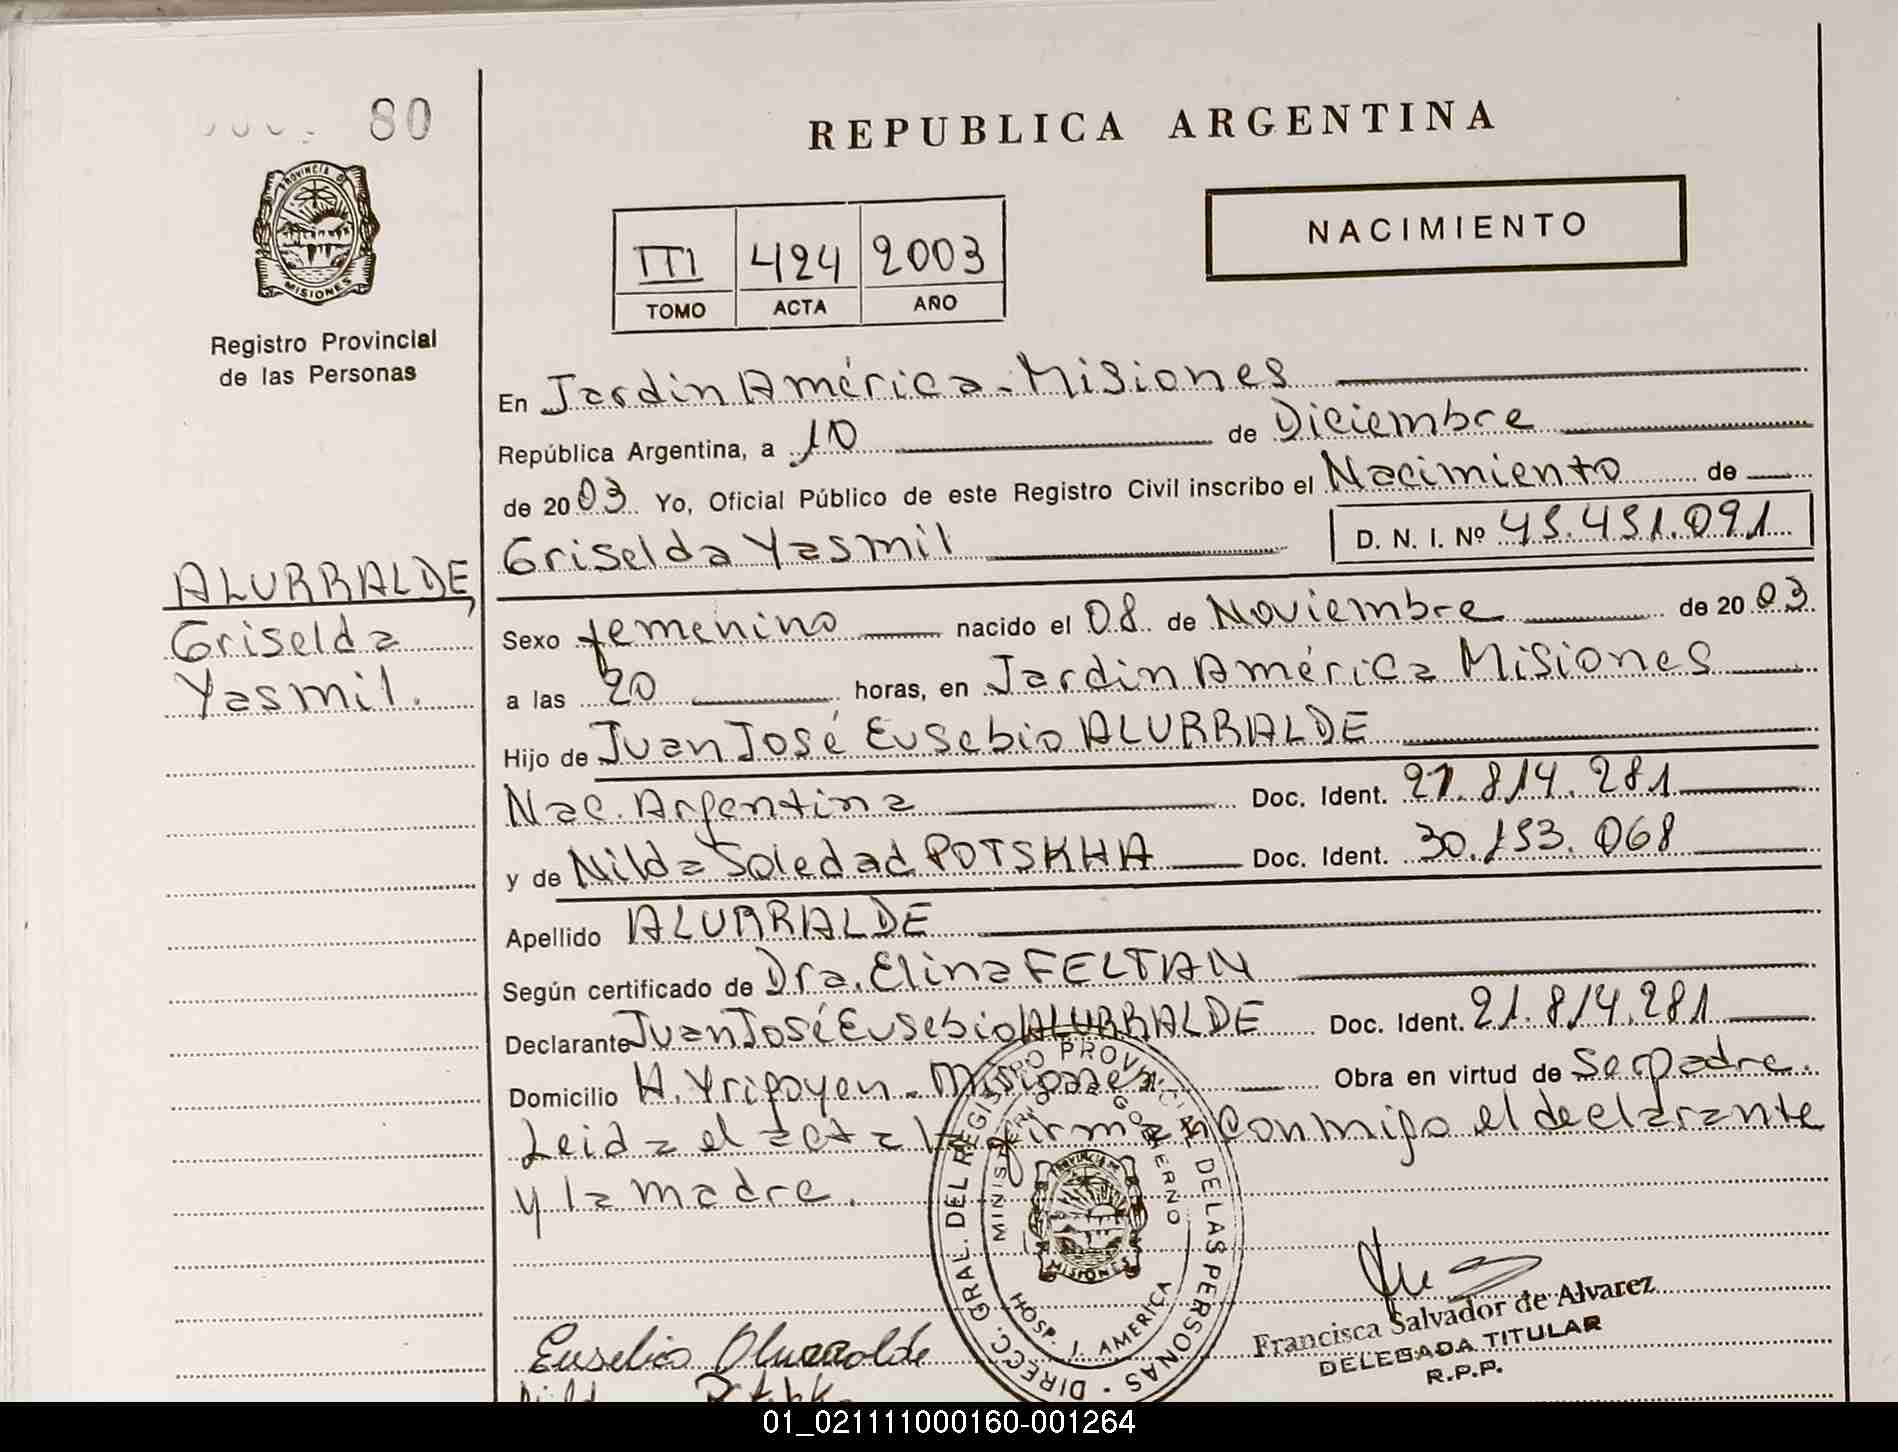 80
REPUBLICA ARGENTINA
NACIMIENTO
III 424 2003
TOMO ACTA AÑO
PROVINCIA DE MISIONES
Registro Provincial
de las Personas
En Jardin América - Misiones
República Argentina, a 10 de Diciembre
de 2003 Yo, Oficial Público de este Registro Civil inscribo el Nacimiento de
Griselda Yasmil D. N. I. Nº 45.451.091
ALURRALDE,
Griselda
Yasmil.
Sexo femenino nacido el 08 de Noviembre de 2003
a las 20 horas, en Jardin América Misiones
Hijo de Juan José Eusebio ALURRALDE
Nac. Argentina Doc. Ident. 21.814.281
y de Nilda Soledad POTSKHA Doc. Ident. 30.153.068
Apellido ALURRALDE
Según certificado de Dra. Elina FELTAN
Declarante Juan José Eusebio ALURRALDE Doc. Ident. 21.814.281
Domicilio H. Yrigoyen - Misiones Obra en virtud de Ser padre.
Leida el acta la firman conmigo el declarante
y la madre.
DIRECC. GRAL. DEL REGISTRO PROVINCIAL DE LAS PERSONAS
MINISTERIO DE GOBIERNO
PROVINCIA DE MISIONES
HOSP. J. AMERICA
Eusebio Alurralde
Francisca Salvador de Alvarez
DELEGADA TITULAR
R.P.P.
01_021111000160-001264